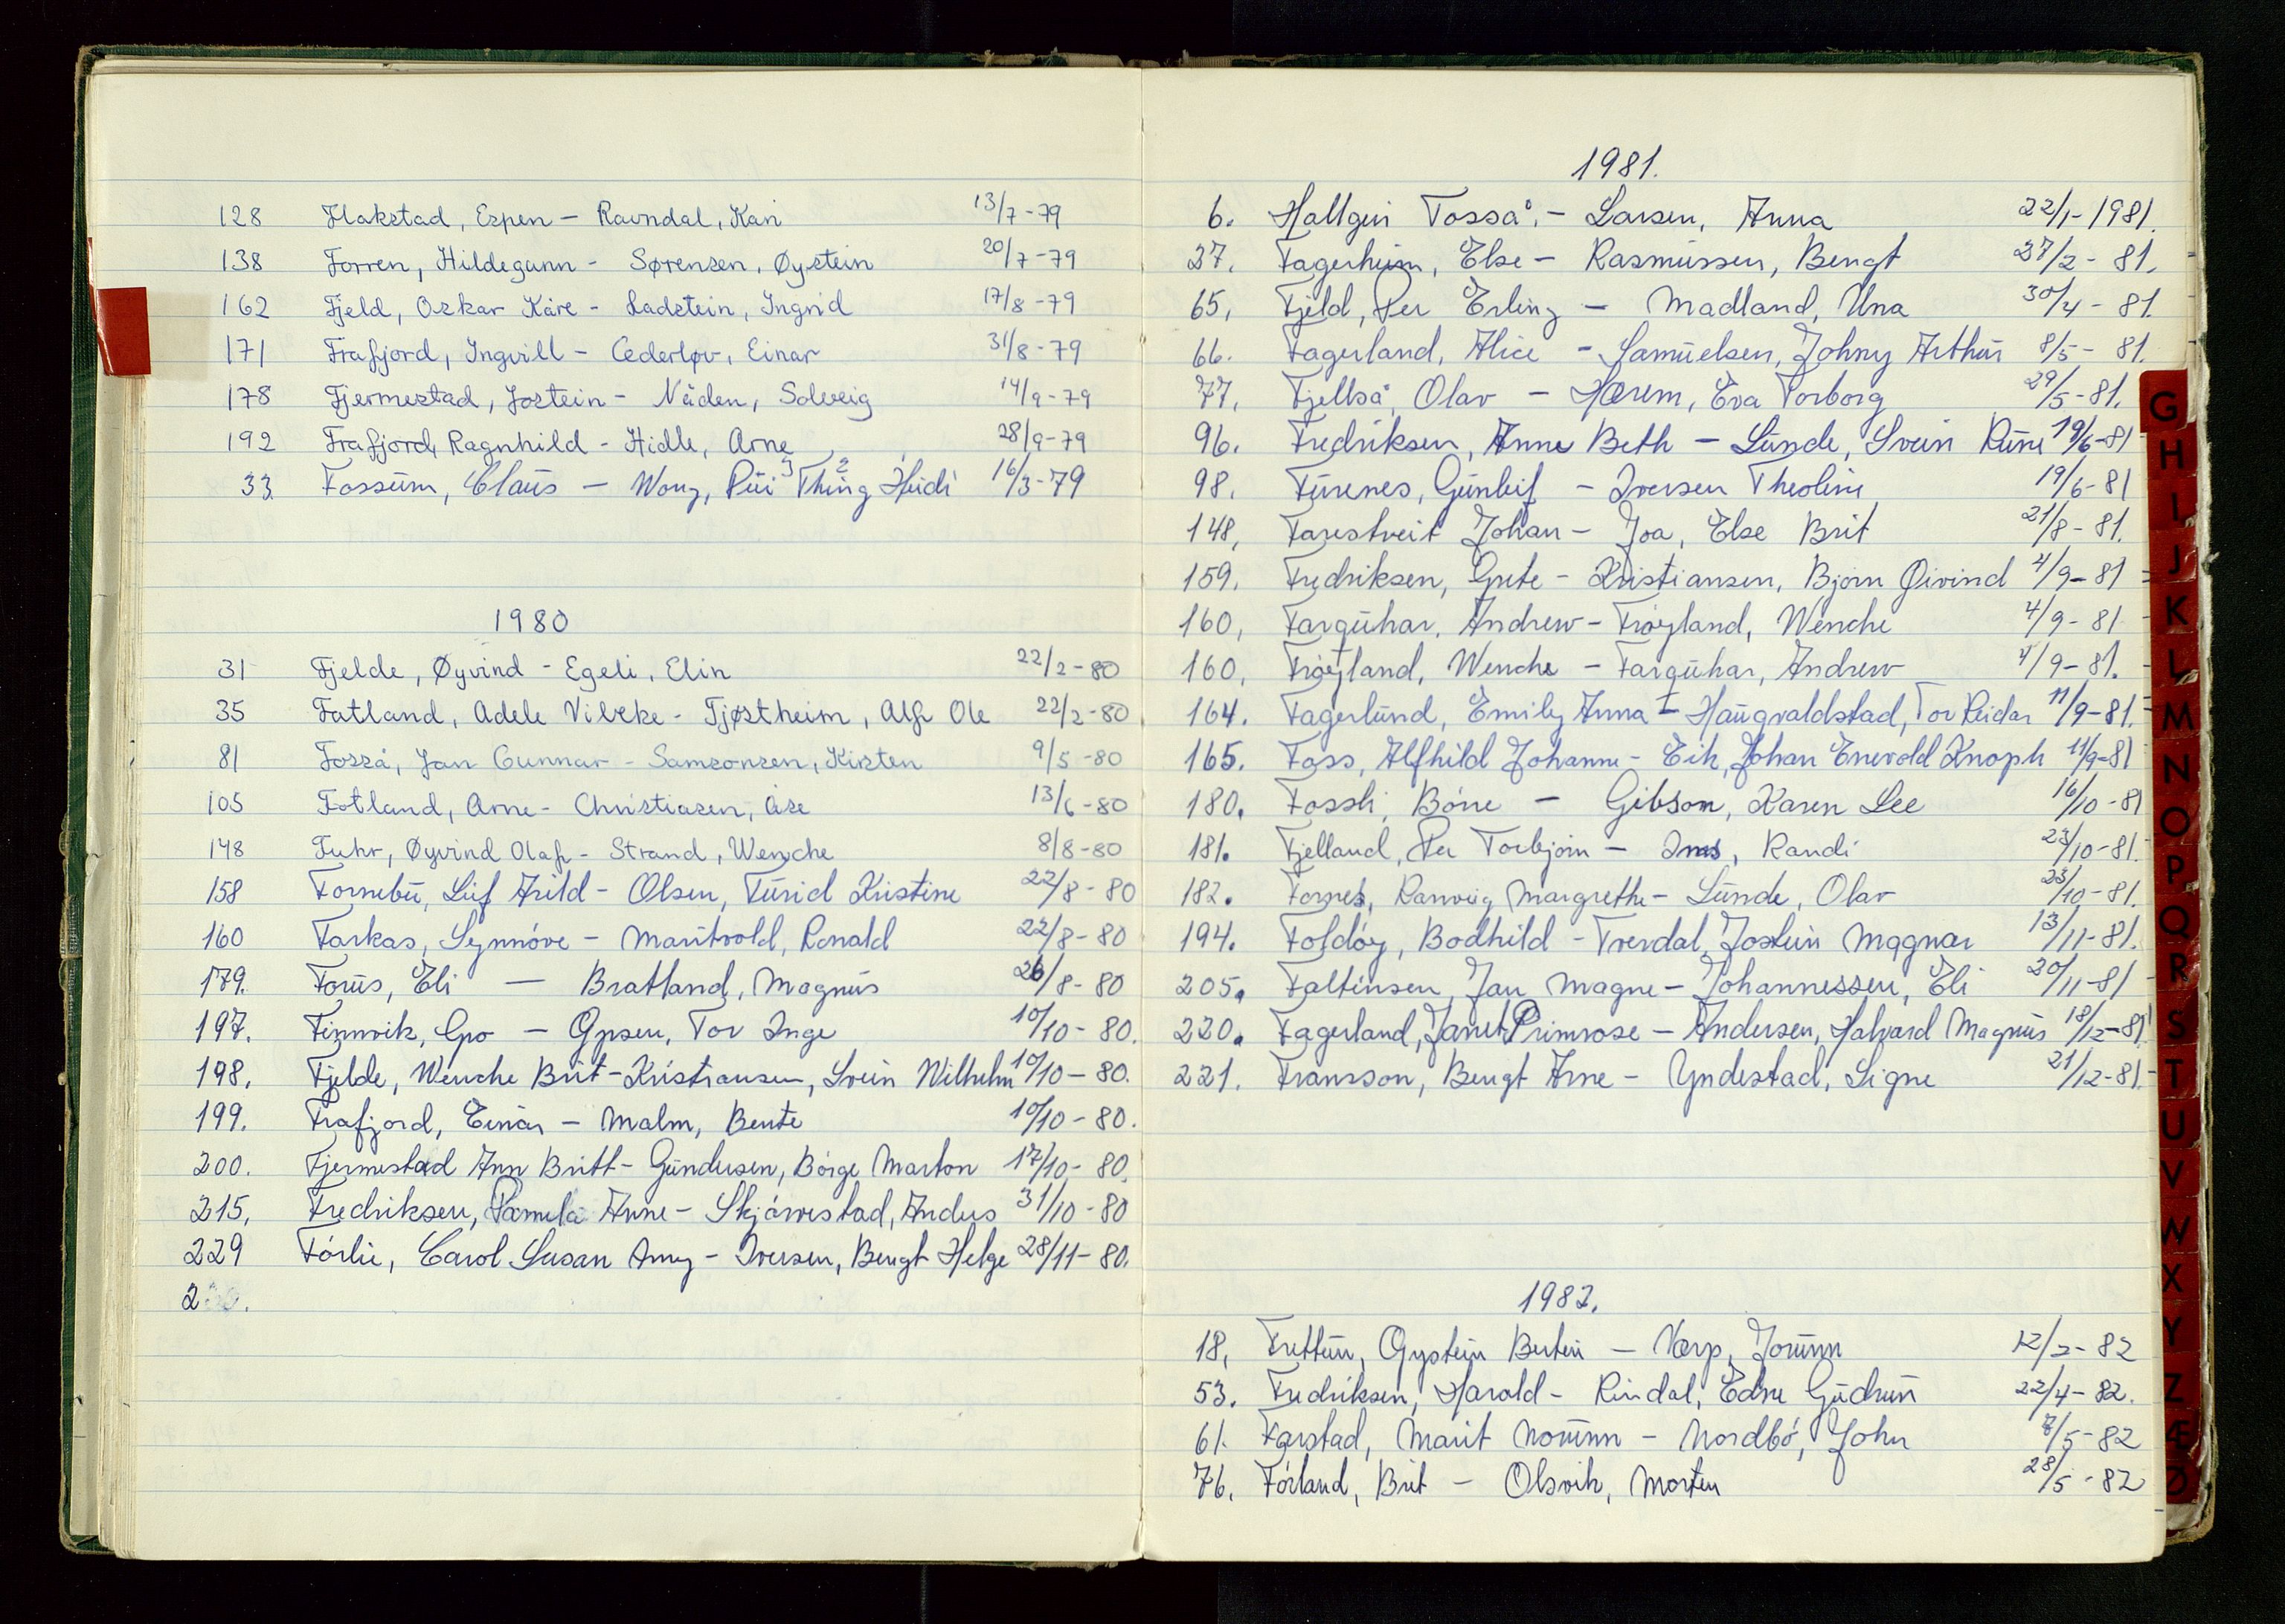 128 Flakstad, Espen - Ravndal, Kari 13/7-79
138 Forren, Hildegunn - Sørensen, Øystein 20/7-79
162 Fjeld, Oskar Kåre - Ladstein, Ingrid 17/8-79
171 Frafjord, Ingvill - Cederløv, Einar 31/8-79
178 Fjermestad, Jostein - Nåden, Solveig 14/9-79
192 Frafjord, Ragnhild - Hidle, Arne 28/9-79
33 Fossum, Claus - Wong, Pui Thing Heidi 16/3-79
1980
31 Fjelde, Øyvind - Egeli, Elin 22/2-80
35 Fatland, Adele Vibeke - Tjøstheim, Alf Ole 22/2-80
81 Fosså, Jan Gunnar - Samsonsen, Kirsten 9/5-80
105 Fotland, Arne - Christiasen, Åse 13/6-80
148 Fuhr, Øyvind Olaf - Strand, Wenche 8/8-80
158 Fornebu, Leif Arild - Olsen, Turid Kristine 22/8-80
160 Farkas, Synnóve - Maritvold, Ronald 22/8-80
179. Forus, Eli - Bratland, Magnus 26/8-80
197. Finnvik, Gro - Opsen, Tor Inge 10/10-80.
198. Fjelde, Wenche Brit - Kristiansen, Svein Wilhelm 10/10-80.
199. Frafjord, Einar - Malm, Bente 10/10-80.
200. Fjermestad Ann Britt - Gundersen, Bórge Marton 17/10-80.
215, Fredriksen, Pamela Anne - Skjórestad, Anders 31/10-80
229 Fórlie, Carol Susan Amy - Iversen, Bengt Helge 28/11-80.
230.
1981.
6. Hallgeir Fosså, - Larsen, Anna 22/1-1981.
27. Fagerheim, Else - Rasmussen, Bengt 27/2-81.
65, Fjeld, Per Erling - Madland, Una 30/4-81.
66. Fagerland, Alice - Samuelsen, Johny Arthur 8/5-81.
77, Fjellså, Olav - Hærem, Eva Torborg 29/5-81.
96. Fredriksen, Anne Beth - Lunde, Svein Rune 19/6-81
98. Furenes, Gunleif - Iversen Theoline 19/6-81
148, Farestveit Johan - Joa, Else Brit 21/8-81.
159. Fredriksen, Grete - Kristiansen, Bjórn Øivind 4/9-81
160, Farquhar, Andrew - Fróyland, Wenche 4/9-81
160, Fróyland, Wenche - Farquhar, Andrew 4/9-81.
164. Fagerlund, Emily Anna - Haugvaldstad, Tor Reidar 11/9-81.
165. Foss, Alfhild Johanne - Eik, Johan Enevold Knoph 11/9-81
180. Fossli, Bórre - Gibson, Karen Lee 16/10-81
181. Fjelland, Per Torbjórn - Ims, Randi 23/10-81.
182. Fornes, Ranveig Margrethe - Lunde, Olav 23/10-81.
194. Foldóy, Bodhild - Tverdal, Jostein Magnar 13/11-81.
205. Faltinsen, Jan Magne - Johannessen, Eli 20/11-81
220. Fagerland, Janet Primrose - Andersen, Halvard Magnus 18/12-81
221. Fransson, Bengt Arne - Yndestad, Signe 21/12-81.
1982.
18, Frettun, Oystein Bertin - Værp, Jorunn 12/2-82
53. Fredriksen, Harold - Rindal, Edne Gudrun 22/4-82.
61. Farstad, Marit Norunn - Nordbó, John 7/5-82
76. Fórland, Brit - Olsvik, Morten 28/5-82
G
H
I
J
K
L
M
N
O
P
Q
R
S
T
U
V
W
X
Y
Z
Æ
Ø